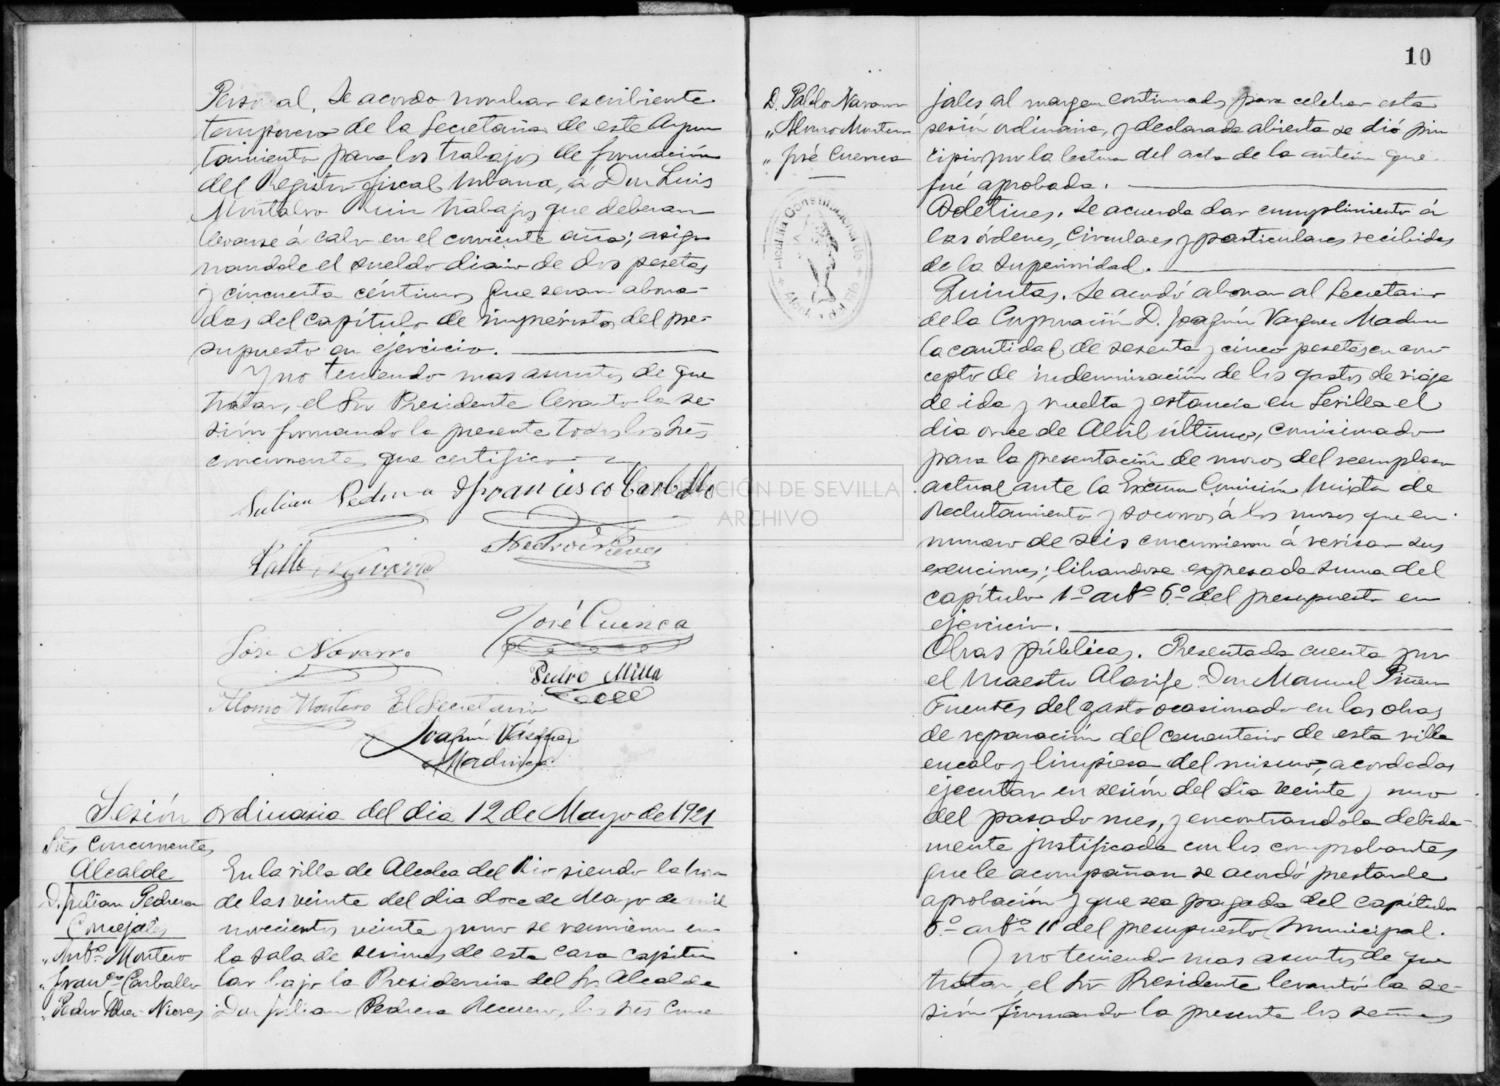 Personal. Se acordó nombrar escribiente
temporero de la Secretaria de este Ayun
tamiento para los trabajos de formación
del Registro fiscal Urbana, á Don Luis
Montalvo cuyos trabajos que deberan
llevarse á cabo en el corriente año; asig
nandole el sueldo diario de dos pesetas
y cincuenta céntimos que seran abona-
das del capítulo de imprevistos del pre-
supuesto en ejercicio.
Y no teniendo mas asuntos de que
tratar, el Sor Presidente levantó la se-
sión firmando la presente todos los Sres
concurrentes que certifico
Julian Pedrera Francisco Carballo
Pablo Navarro
Pedro Nieves
José Cuenca
José Navarro
Pedro Milla
Alonso Montero El Secretario
Joaquín Vázquez
Sesión ordinaria del dia 12 de Mayo de 1921
Sres Concurrentes
Alcalde
D. Julian Pedrera
Concejales
" Antº Montero
" Franco Carballo
" Pedro Nieves
En la villa de Alcolea del Rio siendo la hora
de las veinte del dia doce de Mayo de mil
novecientos veinte y uno se reunieron en
la sala de sesiones de esta casa capitu
lar bajo la Presidencia del Sor Alcalde
Don Julian Pedrera Recuero, los Sres Conce
10
D. Pablo Navarro
" Alonso Montero
" José Cuenca
jales al margen continuados para celebrar esta
sesión ordinaria, y declarada abierta se dió prin
cipio por la lectura del acta de la anterior que
fué aprobada.
Boletines. Se acuerda dar cumplimiento á
las órdenes, Circulares y particulares recibidas
de la superioridad.
Quintas. Se acordó abonar al Secretario
de la Corporación D. Joaquín Vazquez
la cantidad de sesenta y cinco pesetas en con
cepto de indemnización de los gastos de viaje
de ida y vuelta y estancia en Sevilla el
dia once de Abril último, comisionado
para la presentación de mozos del reemplazo
actual ante la Excma Comisión Mixta de
Reclutamiento y socorros á los mozos que en
numero de seis concurrieron á revisar sus
exenciones; librandose expresada suma del
capítulo 1º artº 6º del presupuesto en
ejercicio.
Obras públicas. Presentada cuenta por
el Maestro Alarife Don Manuel
Fuentes del gasto ocasionado en las obras
de reparación del cementerio de esta villa
encalo y limpiesa del mismo, acordadas
ejecutar en sesión del dia veinte y uno
del pasado mes, y encontrandola debida-
mente justificada con los comprobantes
que le acompañan se acordó prestarle
aprobación y que sea pagada del capítulo
6º artº 11 del presupuesto municipal.
Y no teniendo mas asuntos de que
tratar, el Sor Presidente levantó la se-
sión firmando la presente los señores
DIPUTACIÓN DE SEVILLA
ARCHIVO